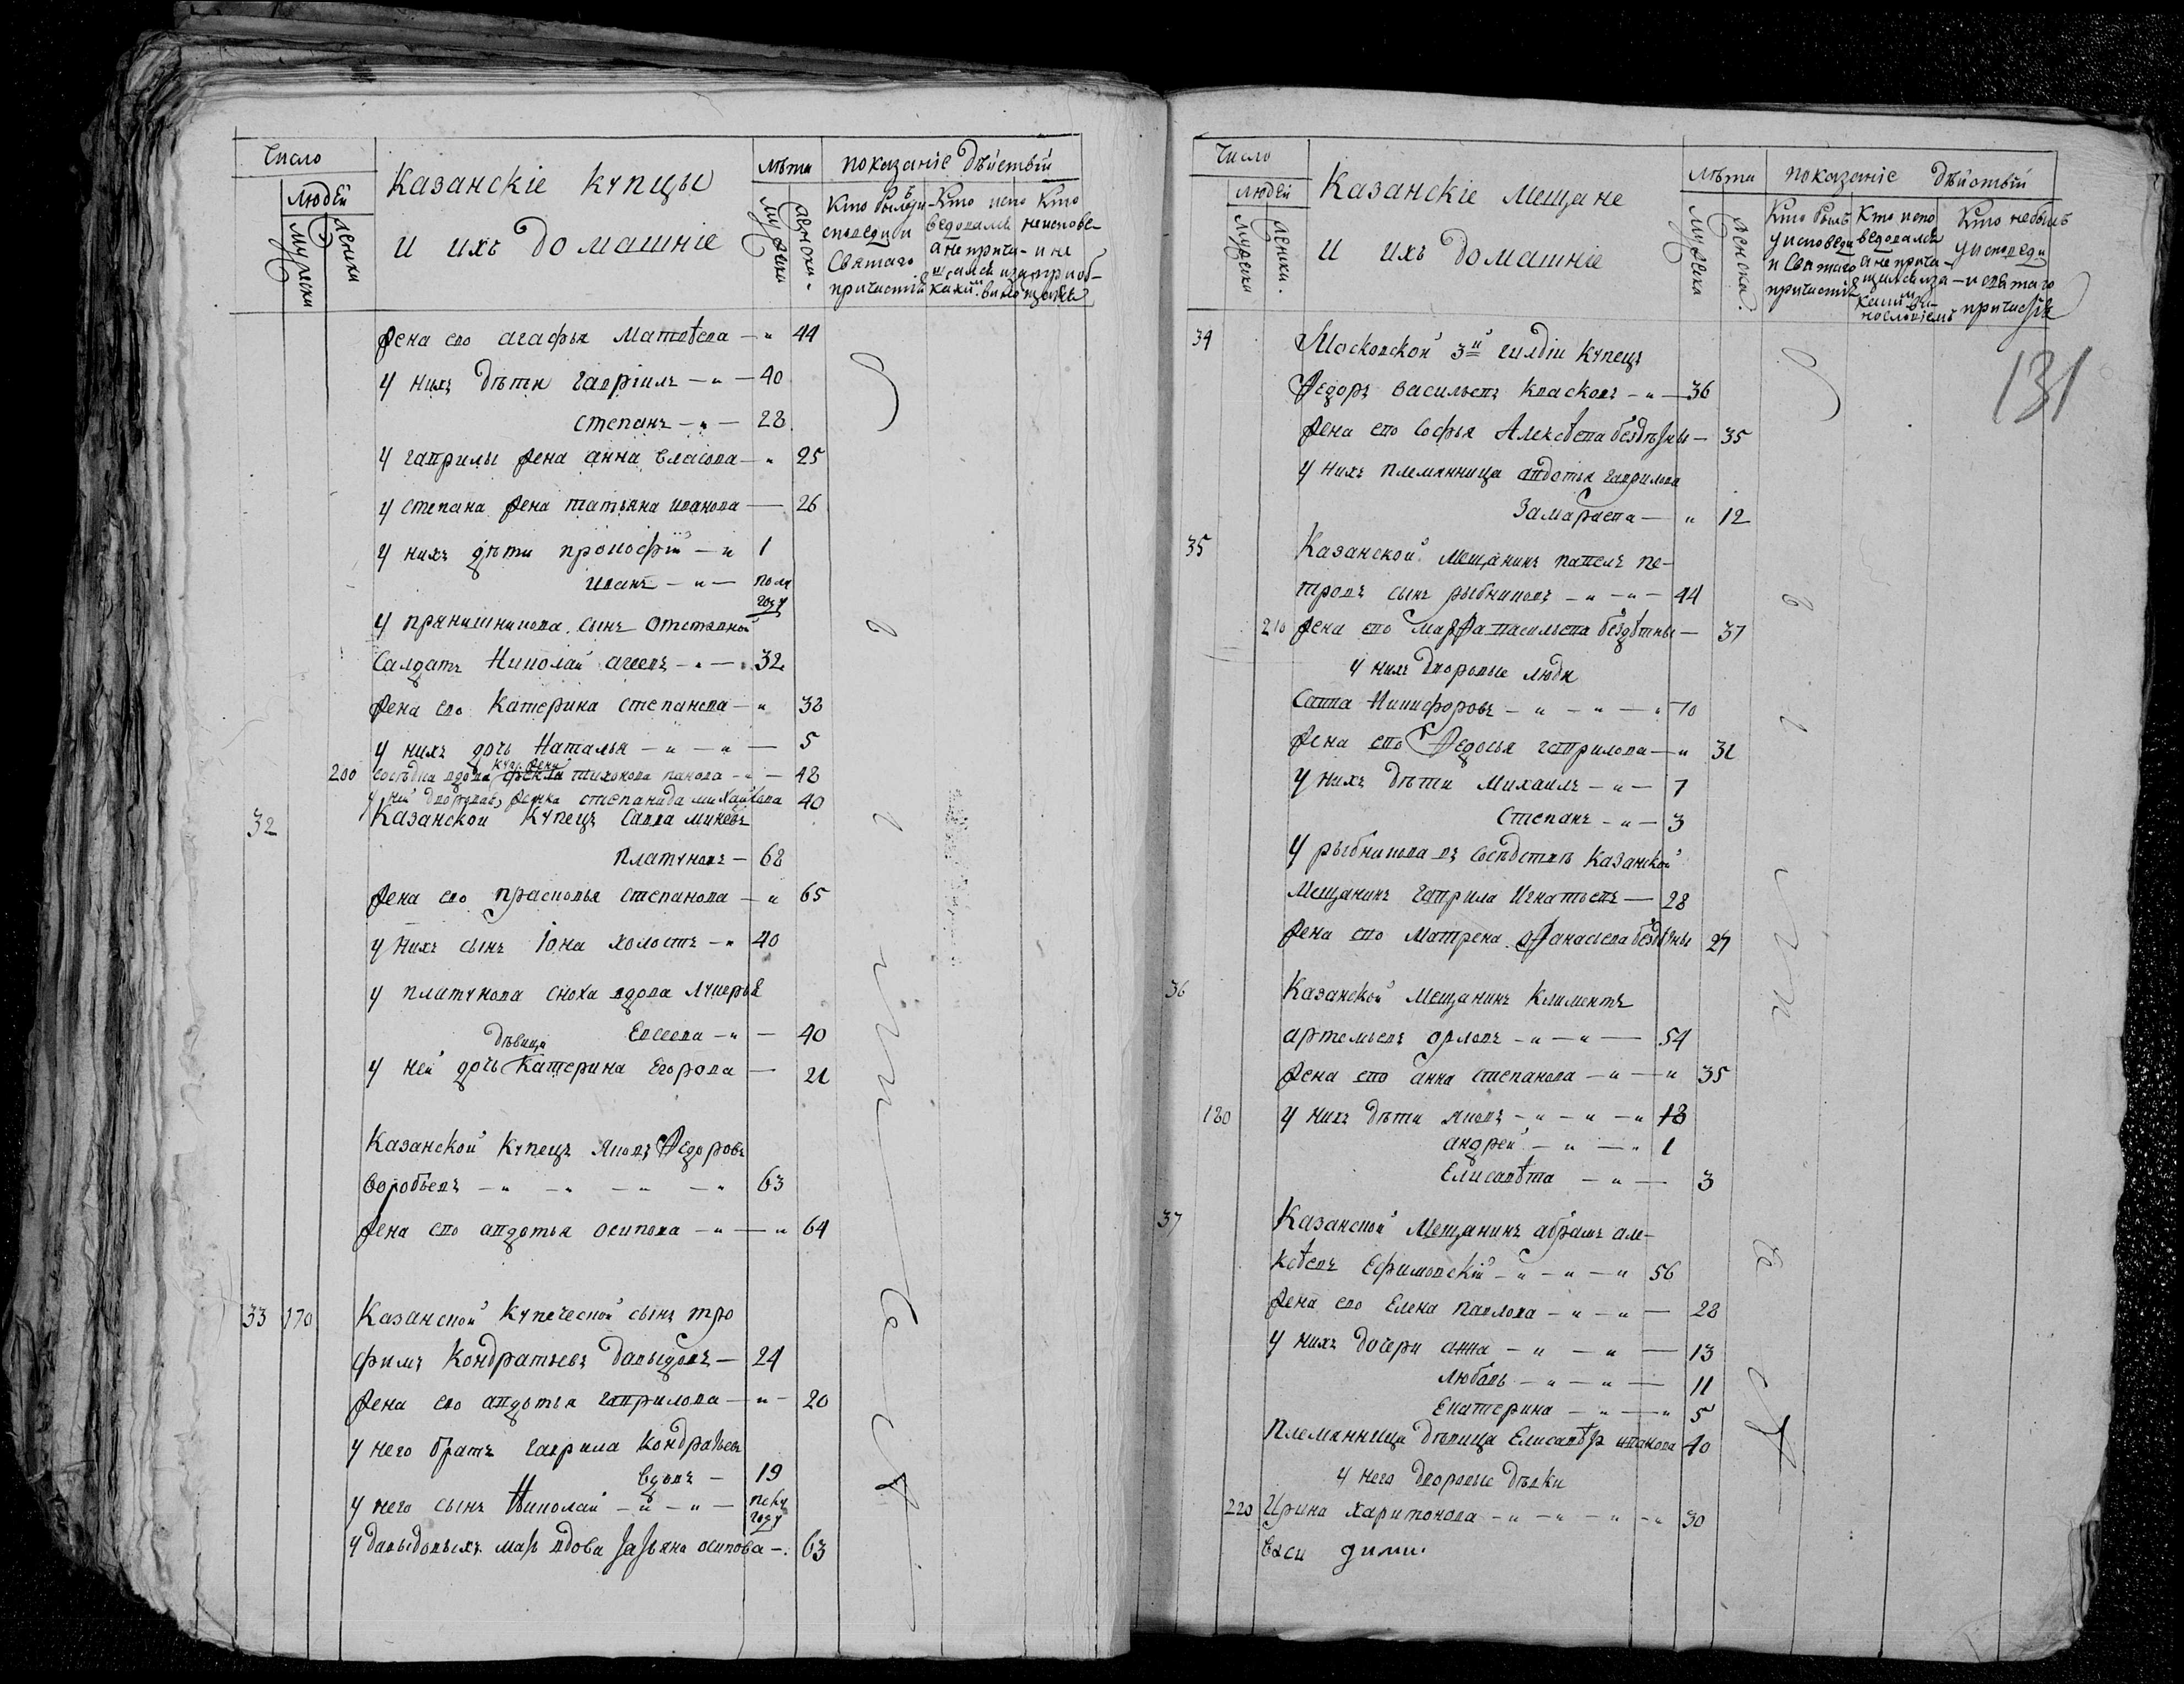 Число
Людей
мужска
женска
Казанскіе купцы
и ихъ домашніе
лѣта
мужска
женска.
показаніе дѣйствій
Кто былъ у исповеди и Святаго причастія
Кто исповедовался а не причащался и за какимъ вино
Кто не исповедался и не приобщался
жена ево агафья Матвѣева — 44
у нихъ дѣти гавріилъ — 40
степанъ — 28
у гаврилы жена анна власова — 25
у степана жена татьяна иванова — 26
у нихъ дѣти прокофій — 1
иванъ — пол году
у прянишникова сынъ отставной
Салдатъ Николай агеевъ — 32
жена ево Катерина степанова — 38
у нихъ дочь Наталья — 5
200 соседка вдова куп. жена фекла тихонова панова — 48
у ней дворовая женка степанида михайлова 40
32 Казанской Купецъ Савва минеевъ
Платуновъ — 68
жена ево прасковья степанова — 65
у нихъ сынъ Іона холостъ — 40
у платунова сноха вдова лукерья
Евсеева — 40
у ней дочь дѣвица Катерина Егорова — 21
Казанской Купецъ Яковъ Федоровъ
Воробьевъ — 63
жена ево авдотья осипова — 64
33 170 Казанской Купеческой сынъ тро
фимъ Кондратьевъ давыдовъ — 24
жена ево авдотья гаврилова — 20
у него братъ гаврила Кондратьевъ
вдовъ — 19
у него сынъ Николай — полу году
у давыдовыхъ мать вдова татьяна осипова — 63
Число
людей
мужска
женска.
Казанскіе Мещане
и ихъ домашніе
лѣта
мужска
женска.
показаніе дѣйствій
Кто былъ у исповеди и Святаго причастія
Кто исповедовался а не причащился и за какимъ винословіемъ
Кто не былъ у исповеди и святаго причастія
131
34 Московской 3й гилдіи Купецъ
Федоръ васильевъ Квасковъ — 36
жена ево Софья Алексѣева бездѣтны — 35
у нихъ племянница авдотья гаврилова
Замараева — 12
35 Казанской мещанинъ павелъ пе-
тровъ сынъ рыбниковъ — 44
210 жена ево марфа васильева бездѣтны — 37
у нихъ дворовые люди
Савва Никифоровъ — 70
жена ево Федосья гаврилова — 31
у нихъ дѣти Михаилъ — 7
Степанъ — 3
у рыбникова въ соседствѣ Казанской
Мещанинъ гаврила Игнатьевъ — 28
жена ево Матрена афанасьева бездѣтны 27
36 Казанской мещанинъ Климентъ
артемьевъ орловъ — 54
жена ево анна степанова — 35
180 у нихъ дѣти яковъ — 18
андрей — 1
Елисавѣта — 3
37 Казанской Мещанинъ абрамъ але-
ксѣевъ Ефимовскій — 56
жена ево Елена павлова — 28
у нихъ дочери анна — 13
любовь — 11
Екатерина — 5
племянница дѣвица Елисавѣта иванова 40
у него дворовые дѣвки
220 Ирина харитонова — 30